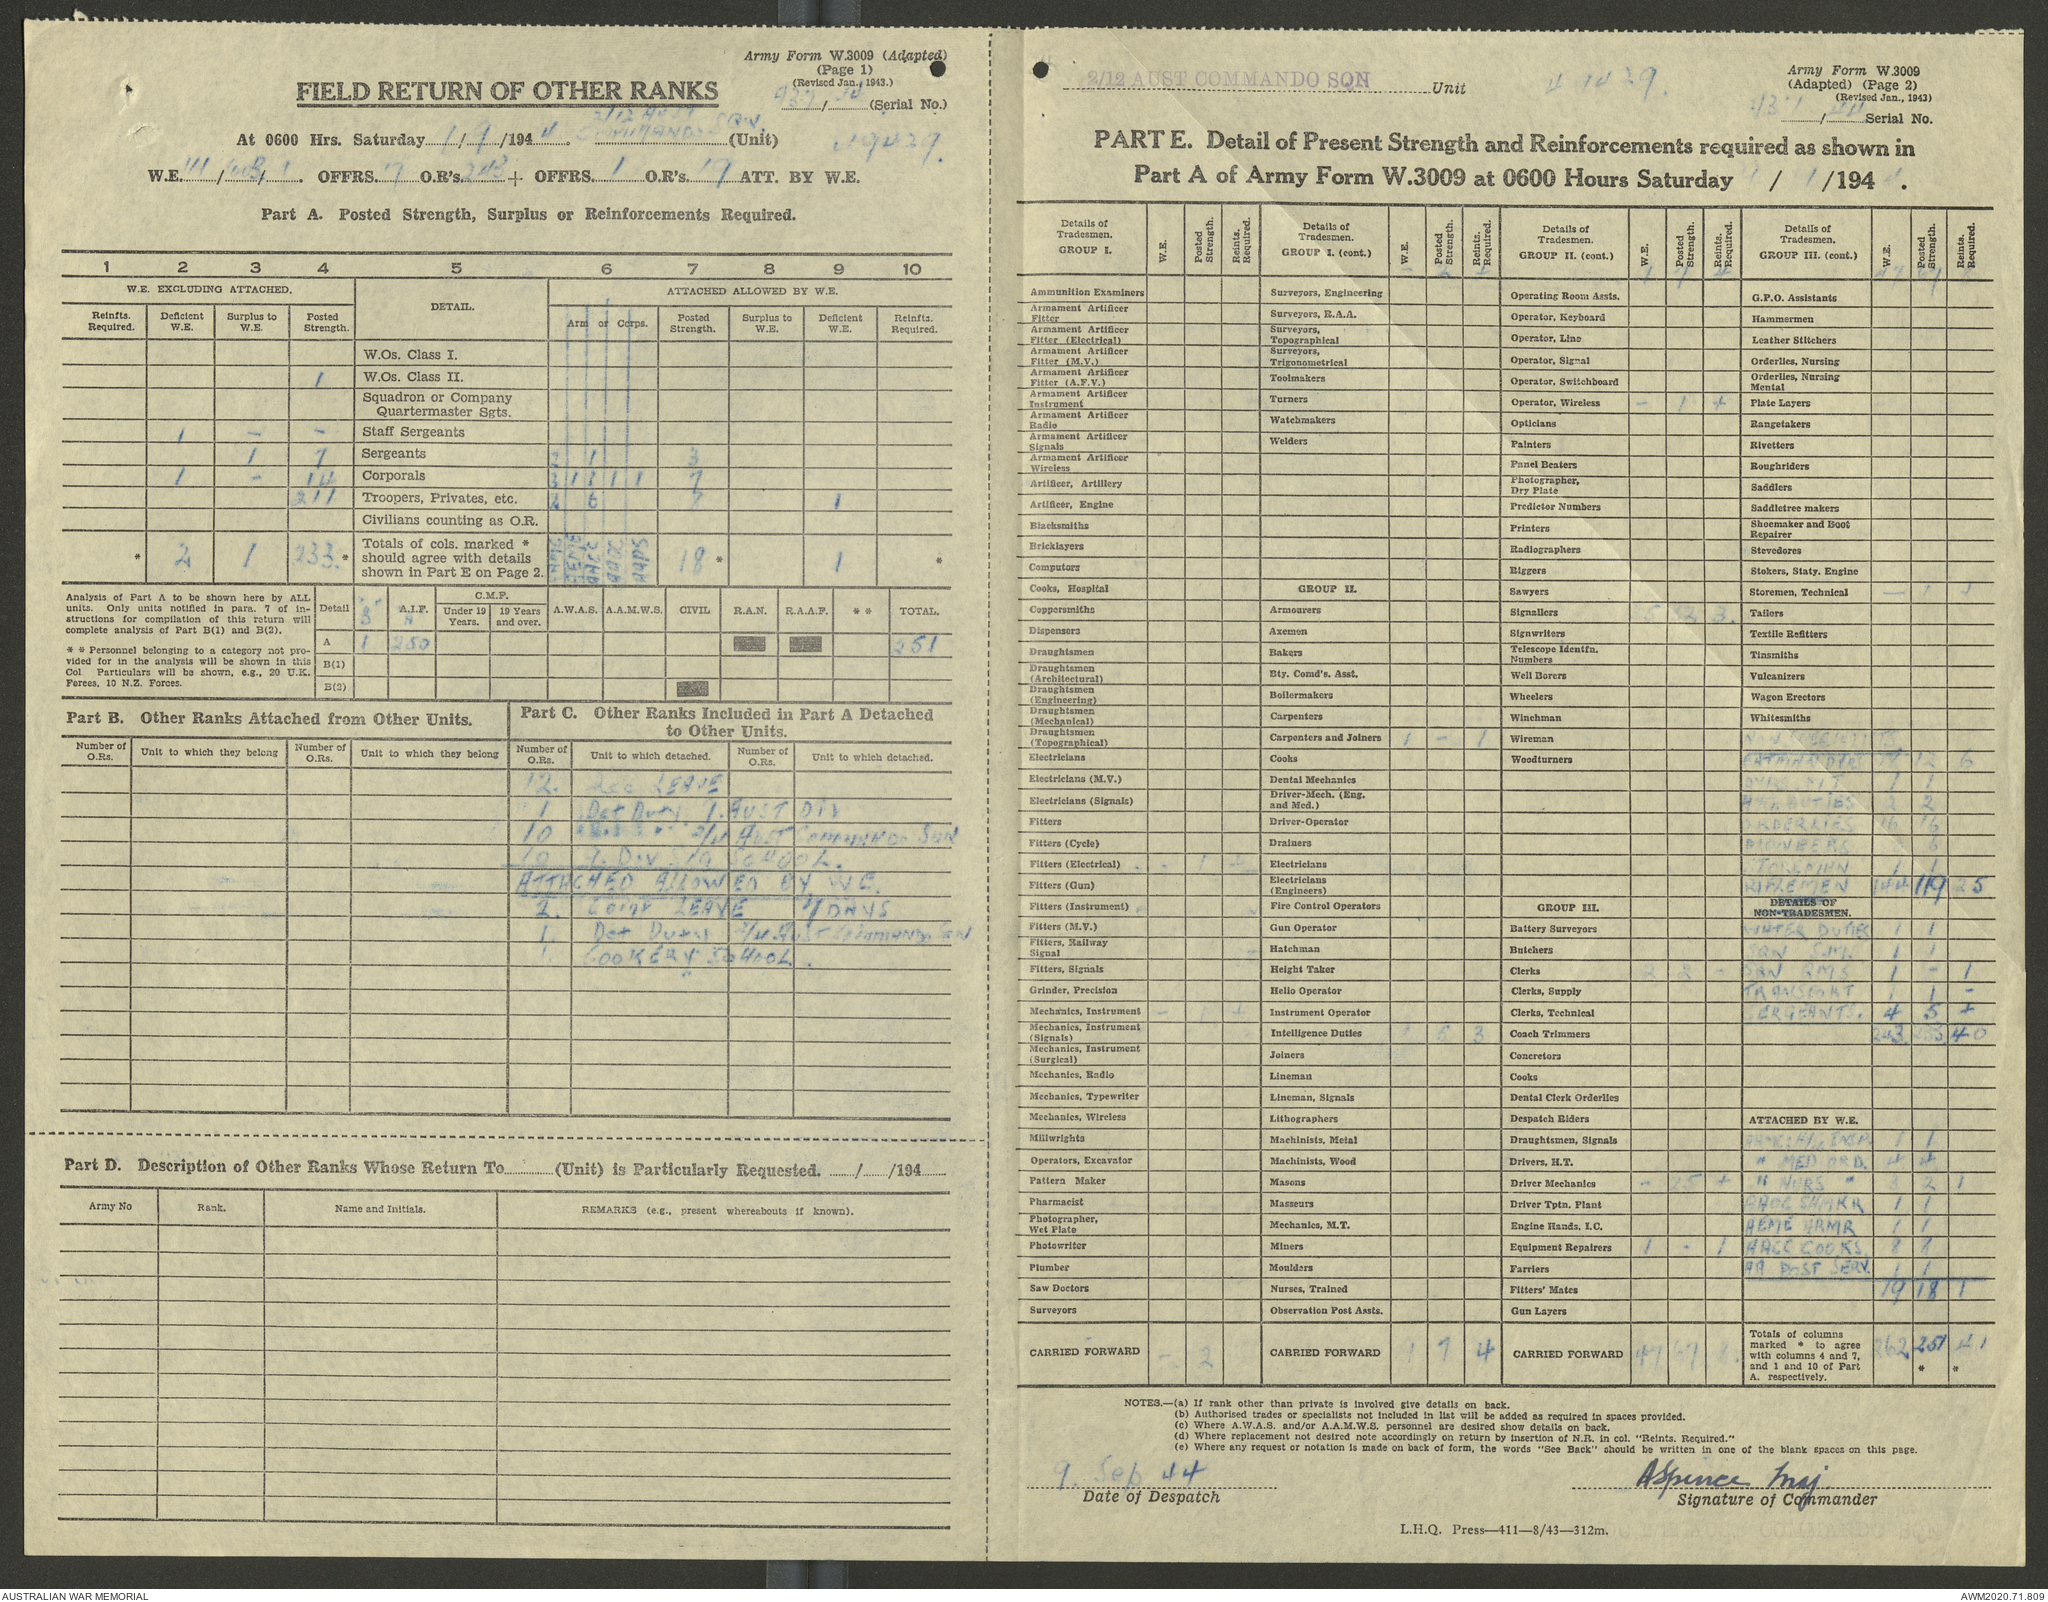 Army Form W.3009 (Adapted)
(Page 1)
(Revised Jan., 1943.)
(Serial No.)
FIELD RETURN OF OTHER RANKS
2/12 AUST
COMMANDO SQN
At 0600 Hrs. Saturday 1/9/194 4. (Unit)
W.E. / / . OFFRS. O.R's. 243 + OFFRS. 1 O.R's. 19 ATT. BY W.E.
Part A. Posted Strength, Surplus or Reinforcements Required.
1 2 3 4 5 6 7 8 9 10
W.E. EXCLUDING ATTACHED. DETAIL. ATTACHED ALLOWED BY W.E.
Reinfts. Required. Deficient W.E. Surplus to W.E. Posted Strength. Arm or Corps. Posted Strength. Surplus to W.E. Deficient W.E. Reinfts. Required.
W.Os. Class I.
1 W.Os. Class II.
Squadron or Company Quartermaster Sgts.
1 - - Staff Sergeants
1 7 Sergeants 2 1 3
1 - 14 Corporals 3 1 1 1 1 7
211 Troopers, Privates, etc. 2 6 8 1
Civilians counting as O.R.
* 2 1 233 * Totals of cols. marked * should agree with details shown in Part E on Page 2. 18 * 1 *
Analysis of Part A to be shown here by ALL units. Only units notified in para. 7 of instructions for compilation of this return will complete analysis of Part B(1) and B(2).
* * Personnel belonging to a category not provided for in the analysis will be shown in this Col Particulars will be shown, e.g., 20 U.K. Forces, 10 N.Z. Forces.
Detail A.I.F. C.M.F. Under 19 Years. 19 Years and over. A.W.A.S. A.A.M.W.S. CIVIL R.A.N. R.A.A.F. * * TOTAL.
A 1 250 251
B(1)
B(2)
Part B. Other Ranks Attached from Other Units.
Number of O.Rs. Unit to which they belong Number of O.Rs. Unit to which they belong
Part C. Other Ranks Included in Part A Detached to Other Units.
Number of O.Rs. Unit to which detached. Number of O.Rs. Unit to which detached.
12. LEAVE
1 Det Duty 7. AUST DIV
10 " " AUST COMMANDO SQN
10 7. Div SIG SCHOOL.
ATTACHED ALLOWED BY W.E.
2. Comp LEAVE 7 DAYS
1. Det Duty AUST COMMANDO SQN
1. COOKERY SCHOOL.
Part D. Description of Other Ranks Whose Return To (Unit) is Particularly Requested. / /194
Army No Rank. Name and Initials. REMARKS (e.g., present whereabouts if known).
2/12 AUST COMMANDO SQN Unit
Army Form W.3009
(Adapted) (Page 2)
(Revised Jan., 1943)
Serial No.
PART E. Detail of Present Strength and Reinforcements required as shown in
Part A of Army Form W.3009 at 0600 Hours Saturday / /194 .
Details of Tradesmen. GROUP I. W.E. Posted Strength. Reints. Required.
Ammunition Examiners
Armament Artificer Fitter
Armament Artificer Fitter (Electrical)
Armament Artificer Fitter (M.V.)
Armament Artificer Fitter (A.F.V.)
Armament Artificer Instrument
Armament Artificer Radio
Armament Artificer Signals
Armament Artificer Wireless
Artificer, Artillery
Artificer, Engine
Blacksmiths
Bricklayers
Computors
Cooks, Hospital
Coppersmiths
Dispensers
Draughtsmen
Draughtsmen (Architectural)
Draughtsmen (Engineering)
Draughtsmen (Mechanical)
Draughtsmen (Topographical)
Electricians
Electricians (M.V.)
Electricians (Signals)
Fitters
Fitters (Cycle)
Fitters (Electrical) - 1 +
Fitters (Gun)
Fitters (Instrument)
Fitters (M.V.)
Fitters, Railway Signal
Fitters, Signals
Grinder, Precision
Mechanics, Instrument - 1 +
Mechanics, Instrument (Signals)
Mechanics, Instrument (Surgical)
Mechanics, Radio
Mechanics, Typewriter
Mechanics, Wireless
Millwrights
Operators, Excavator
Pattern Maker
Pharmacist
Photographer, Wet Plate
Photowriter
Plumber
Saw Doctors
Surveyors
CARRIED FORWARD - 2
Details of Tradesmen. GROUP I. (cont.) W.E. Posted Strength. Reints. Required.
Surveyors, Engineering
Surveyors, R.A.A.
Surveyors, Topographical
Surveyors, Trigonometrical
Toolmakers
Turners
Watchmakers
Welders
GROUP II.
Armourers
Axemen
Bakers
Bty. Comd's. Asst.
Boilermakers
Carpenters
Carpenters and Joiners 1 - 1
Cooks
Dental Mechanics
Driver-Mech. (Eng. and Med.)
Driver-Operator
Drainers
Electricians
Electricians (Engineers)
Fire Control Operators
Gun Operator
Hatchman
Height Taker
Helio Operator
Instrument Operator
Intelligence Duties 5 3
Joiners
Lineman
Lineman, Signals
Lithographers
Machinists, Metal
Machinists, Wood
Masons
Masseurs
Mechanics, M.T.
Miners
Moulders
Nurses, Trained
Observation Post Assts.
CARRIED FORWARD 1 7 4
Details of Tradesmen. GROUP II. (cont.) W.E. Posted Strength. Reints. Required.
Operating Room Assts.
Operator, Keyboard
Operator, Line
Operator, Signal
Operator, Switchboard
Operator, Wireless - 1 +
Opticians
Painters
Panel Beaters
Photographer, Dry Plate
Predictor Numbers
Printers
Radiographers
Riggers
Sawyers
Signallers 3
Signwriters
Telescope Identfn. Numbers
Well Borers
Wheelers
Winchman
Wireman
Woodturners
GROUP III.
Battery Surveyors
Butchers
Clerks 2 2 -
Clerks, Supply
Clerks, Technical
Coach Trimmers
Concretors
Cooks
Dental Clerk Orderlies
Despatch Riders
Draughtsmen, Signals
Drivers, H.T.
Driver Mechanics - 25 +
Driver Tptn. Plant
Engine Hands, I.C.
Equipment Repairers 1 - 1
Farriers
Fitters' Mates
Gun Layers
CARRIED FORWARD 47 67 8
Details of Tradesmen. GROUP III. (cont.) W.E. Posted Strength. Reints. Required.
G.P.O. Assistants
Hammermen
Leather Stitchers
Orderlies, Nursing
Orderlies, Nursing Mental
Plate Layers
Rangetakers
Rivetters
Roughriders
Saddlers
Saddletree makers
Shoemaker and Boot Repairer
Stevedores
Stokers, Staty. Engine
Storemen, Technical
Tailors
Textile Refitters
Tinsmiths
Vulcanizers
Wagon Erectors
Whitesmiths
BATMAN 12 6
1 1
DUTIES 2 2
ORDERLIES 16 16
PIONEERS 6
STOREMAN 1 1
RIFLEMEN 144 119 25
DETAILS OF NON-TRADESMEN.
WATER DUTIES 1 1
SQN S.M. 1 1
SQN QMS 1 - 1
TRANSPORT 1 1 -
SERGEANTS. 4 5 +
243 233 40
ATTACHED BY W.E.
1 1
" MED ORD. 4 4
" NURS " 3 2 1
AAOC SHMKR 1 1
AEME ARMR 1 1
AACC COOKS 8 8
AA POST SERV. 1 1
19 18 1
Totals of columns marked * to agree with columns 4 and 7, and 1 and 10 of Part A. respectively. 262 251 * 41 *
NOTES.—(a) If rank other than private is involved give details on back.
(b) Authorised trades or specialists not included in list will be added as required in spaces provided.
(c) Where A.W.A.S. and/or A.A.M.W.S. personnel are desired show details on back.
(d) Where replacement not desired note accordingly on return by insertion of N.R. in col. "Reints. Required."
(e) Where any request or notation is made on back of form, the words "See Back" should be written in one of the blank spaces on this page.
9. Sep 44
Date of Despatch
ASpence Maj
Signature of Commander
L.H.Q. Press—411—8/43—312m.
AUSTRALIAN WAR MEMORIAL
AWM2020.71.809